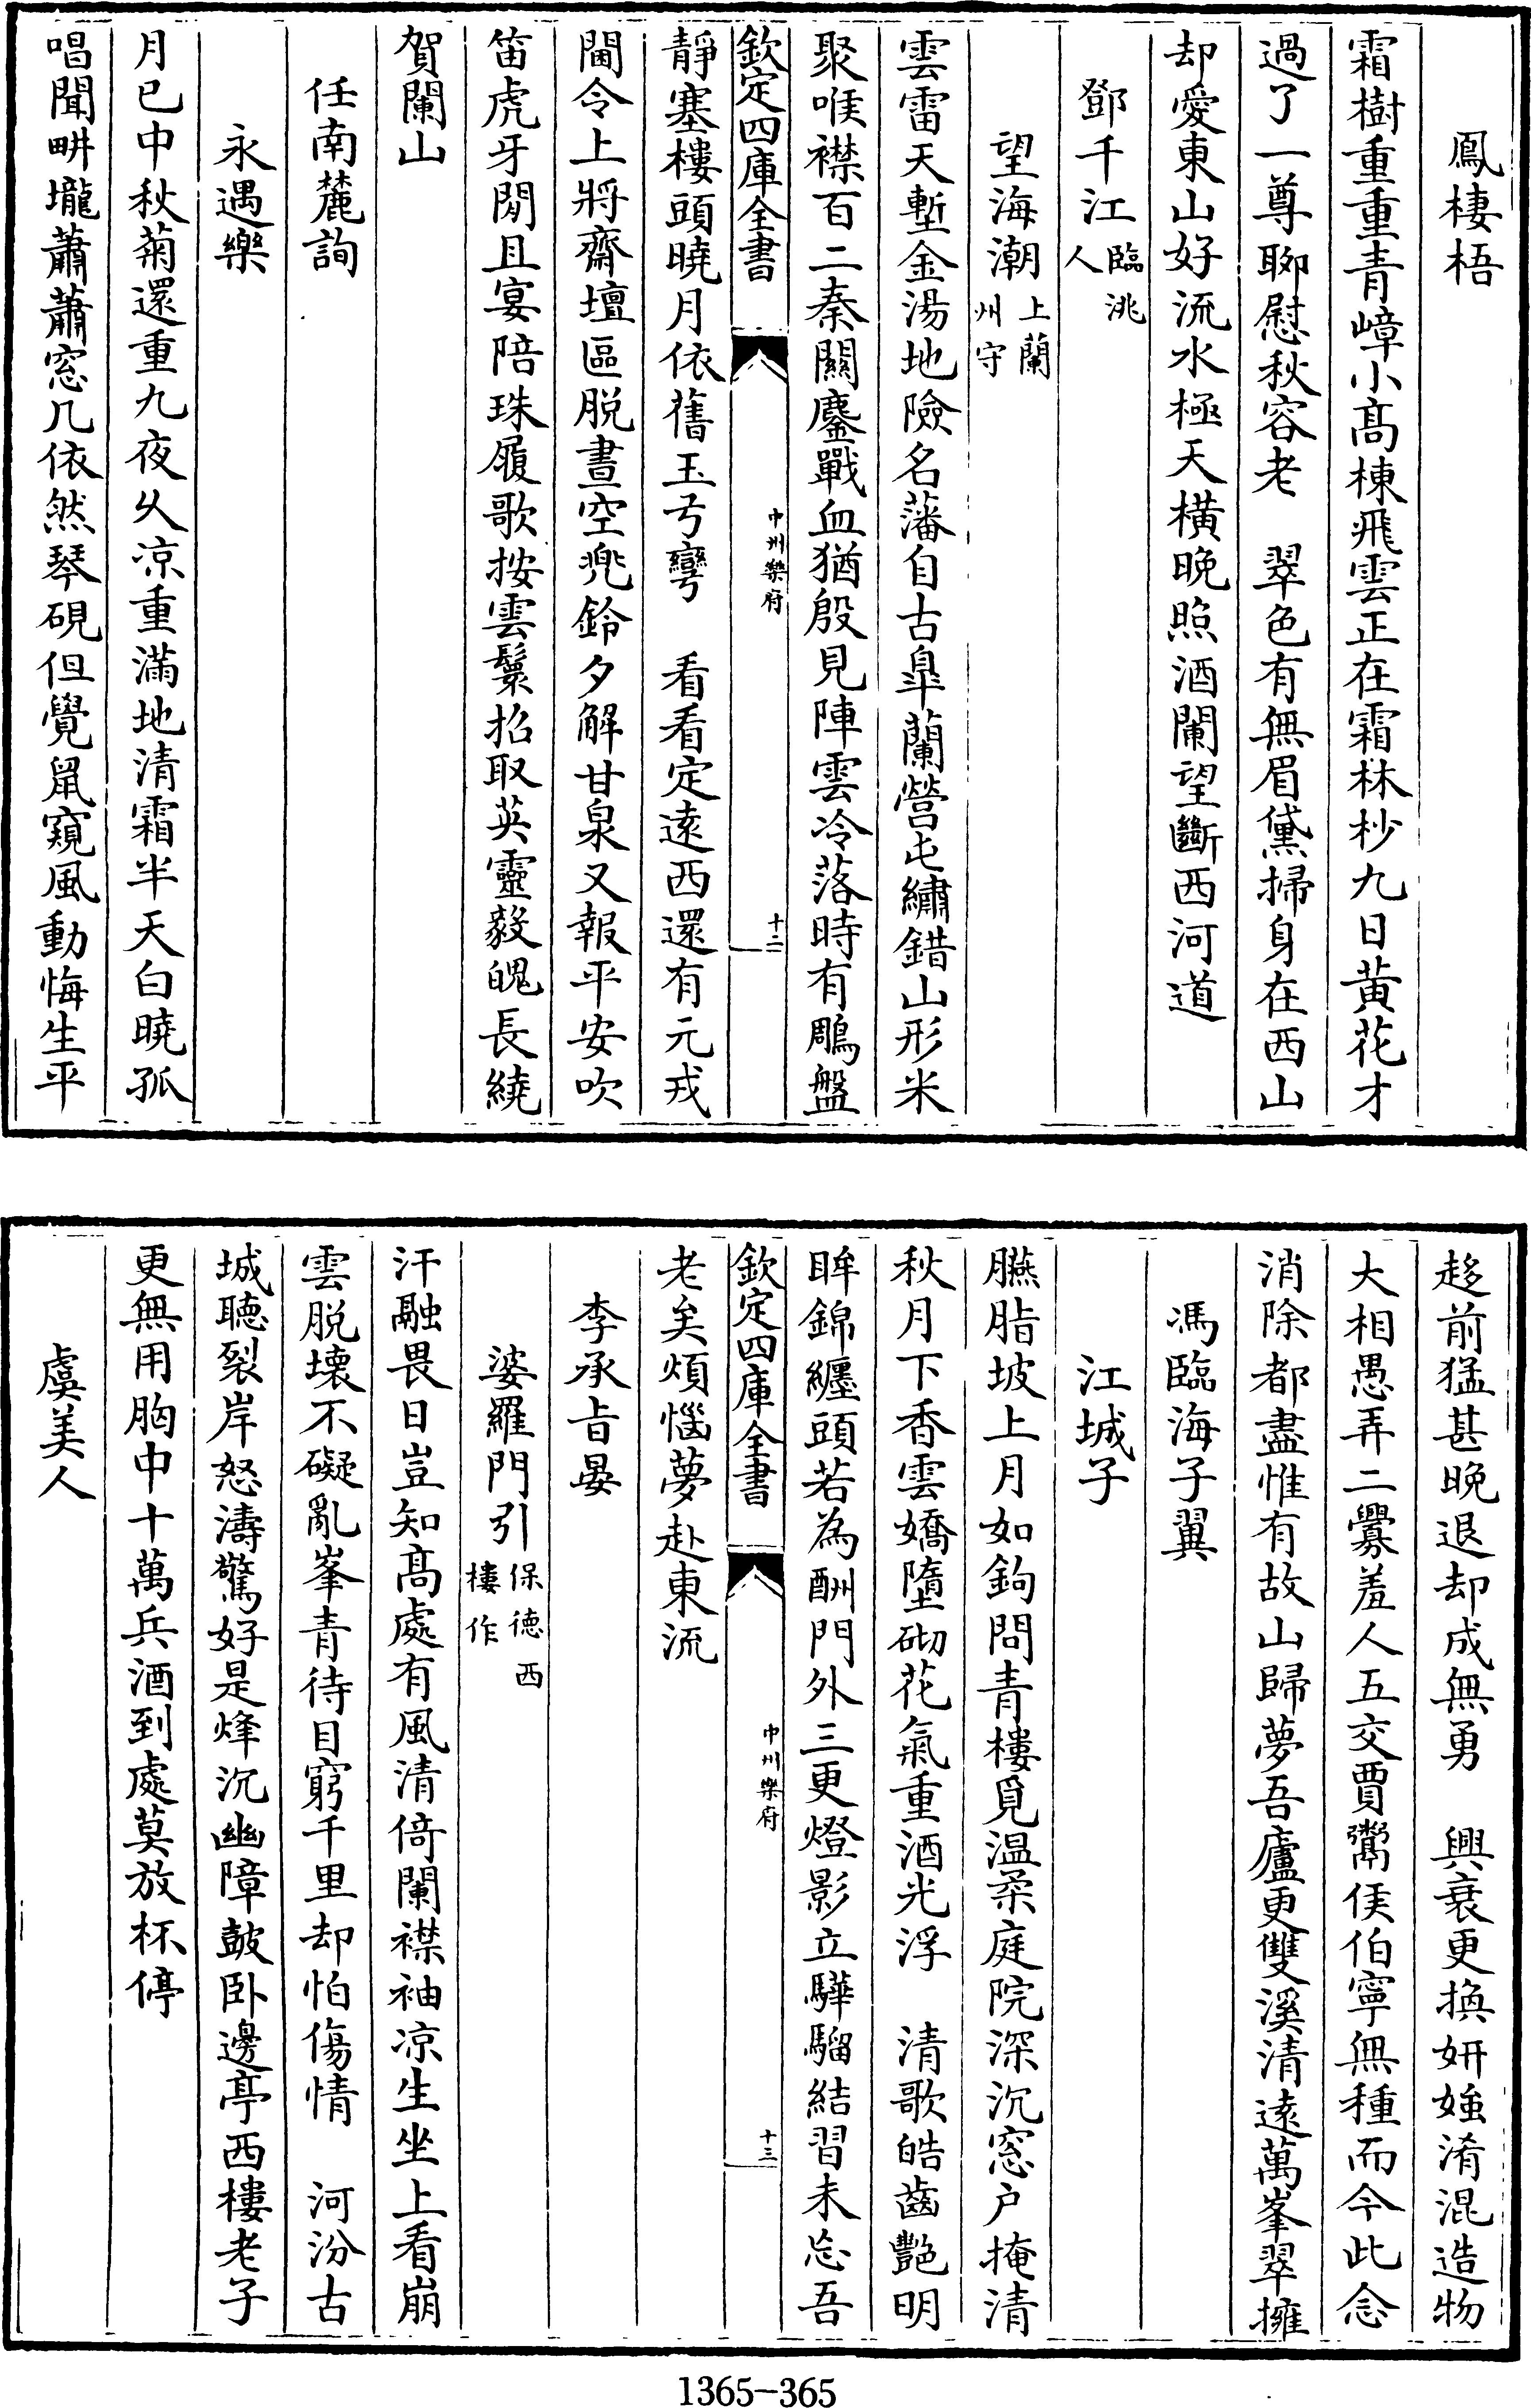 鳳棲梧
霜樹重重青嶂小髙棟飛雲正在霜林杪九日黄花才
過了一尊聊慰秋容老　翠色有無眉黛掃身在西山
却愛東山好流水極天橫晚照酒闌望斷西河道
鄧千江臨洮人
望海潮上蘭州守
雲雷天塹金湯地險名藩自古臯蘭營屯繡錯山形米
聚喉襟百二秦關鏖戰血猶殷見陣雲冷落時有鵰盤
欽定四庫全書　中州樂府　十二
靜塞樓頭曉月依舊玉弓彎　看看定逺西還有元戎
閫令上將齋壇區脱晝空兠鈴夕解甘泉又報平安吹
笛虎牙閒且宴陪珠履歌按雲鬟招取英靈毅魄長繞
賀闌山
任南麓詢
永遇樂
月已中秋菊還重九夜乆凉重滿地清霜半天白曉孤
唱聞畊壠蕭蕭窓几依然琴硯但覺鼠窺風動悔生平
趍前猛甚晚退却成無勇　興衰更換妍媸淆混造物
大相愚弄二釁羞人五交賈鬻侯伯寧無種而今此念
消除都盡惟有故山歸夢吾廬更雙溪清逺萬峯翠擁
馮臨海子翼
江城子
臙脂坡上月如鉤問青樓覓温柔庭院深沉窓户掩清
秋月下香雲嬌墮砌花氣重酒光浮　清歌皓齒艷明
眸錦纏頭若為酬門外三更燈影立驊騮結習未忘吾
欽定四庫全書　中州樂府　十三
老矣煩惱夢赴東流
李承㫖晏
婆羅門引保德西樓作
汗融畏日豈知髙處有風清倚闌襟袖凉生坐上看崩
雲脱壊不礙亂峯青待目窮千里却怕傷情　河汾古
城聽裂岸怒濤驚好是烽沉幽障鼓卧邊亭西樓老子
更無用胸中十萬兵酒到處莫放杯停
虞美人
1365-365